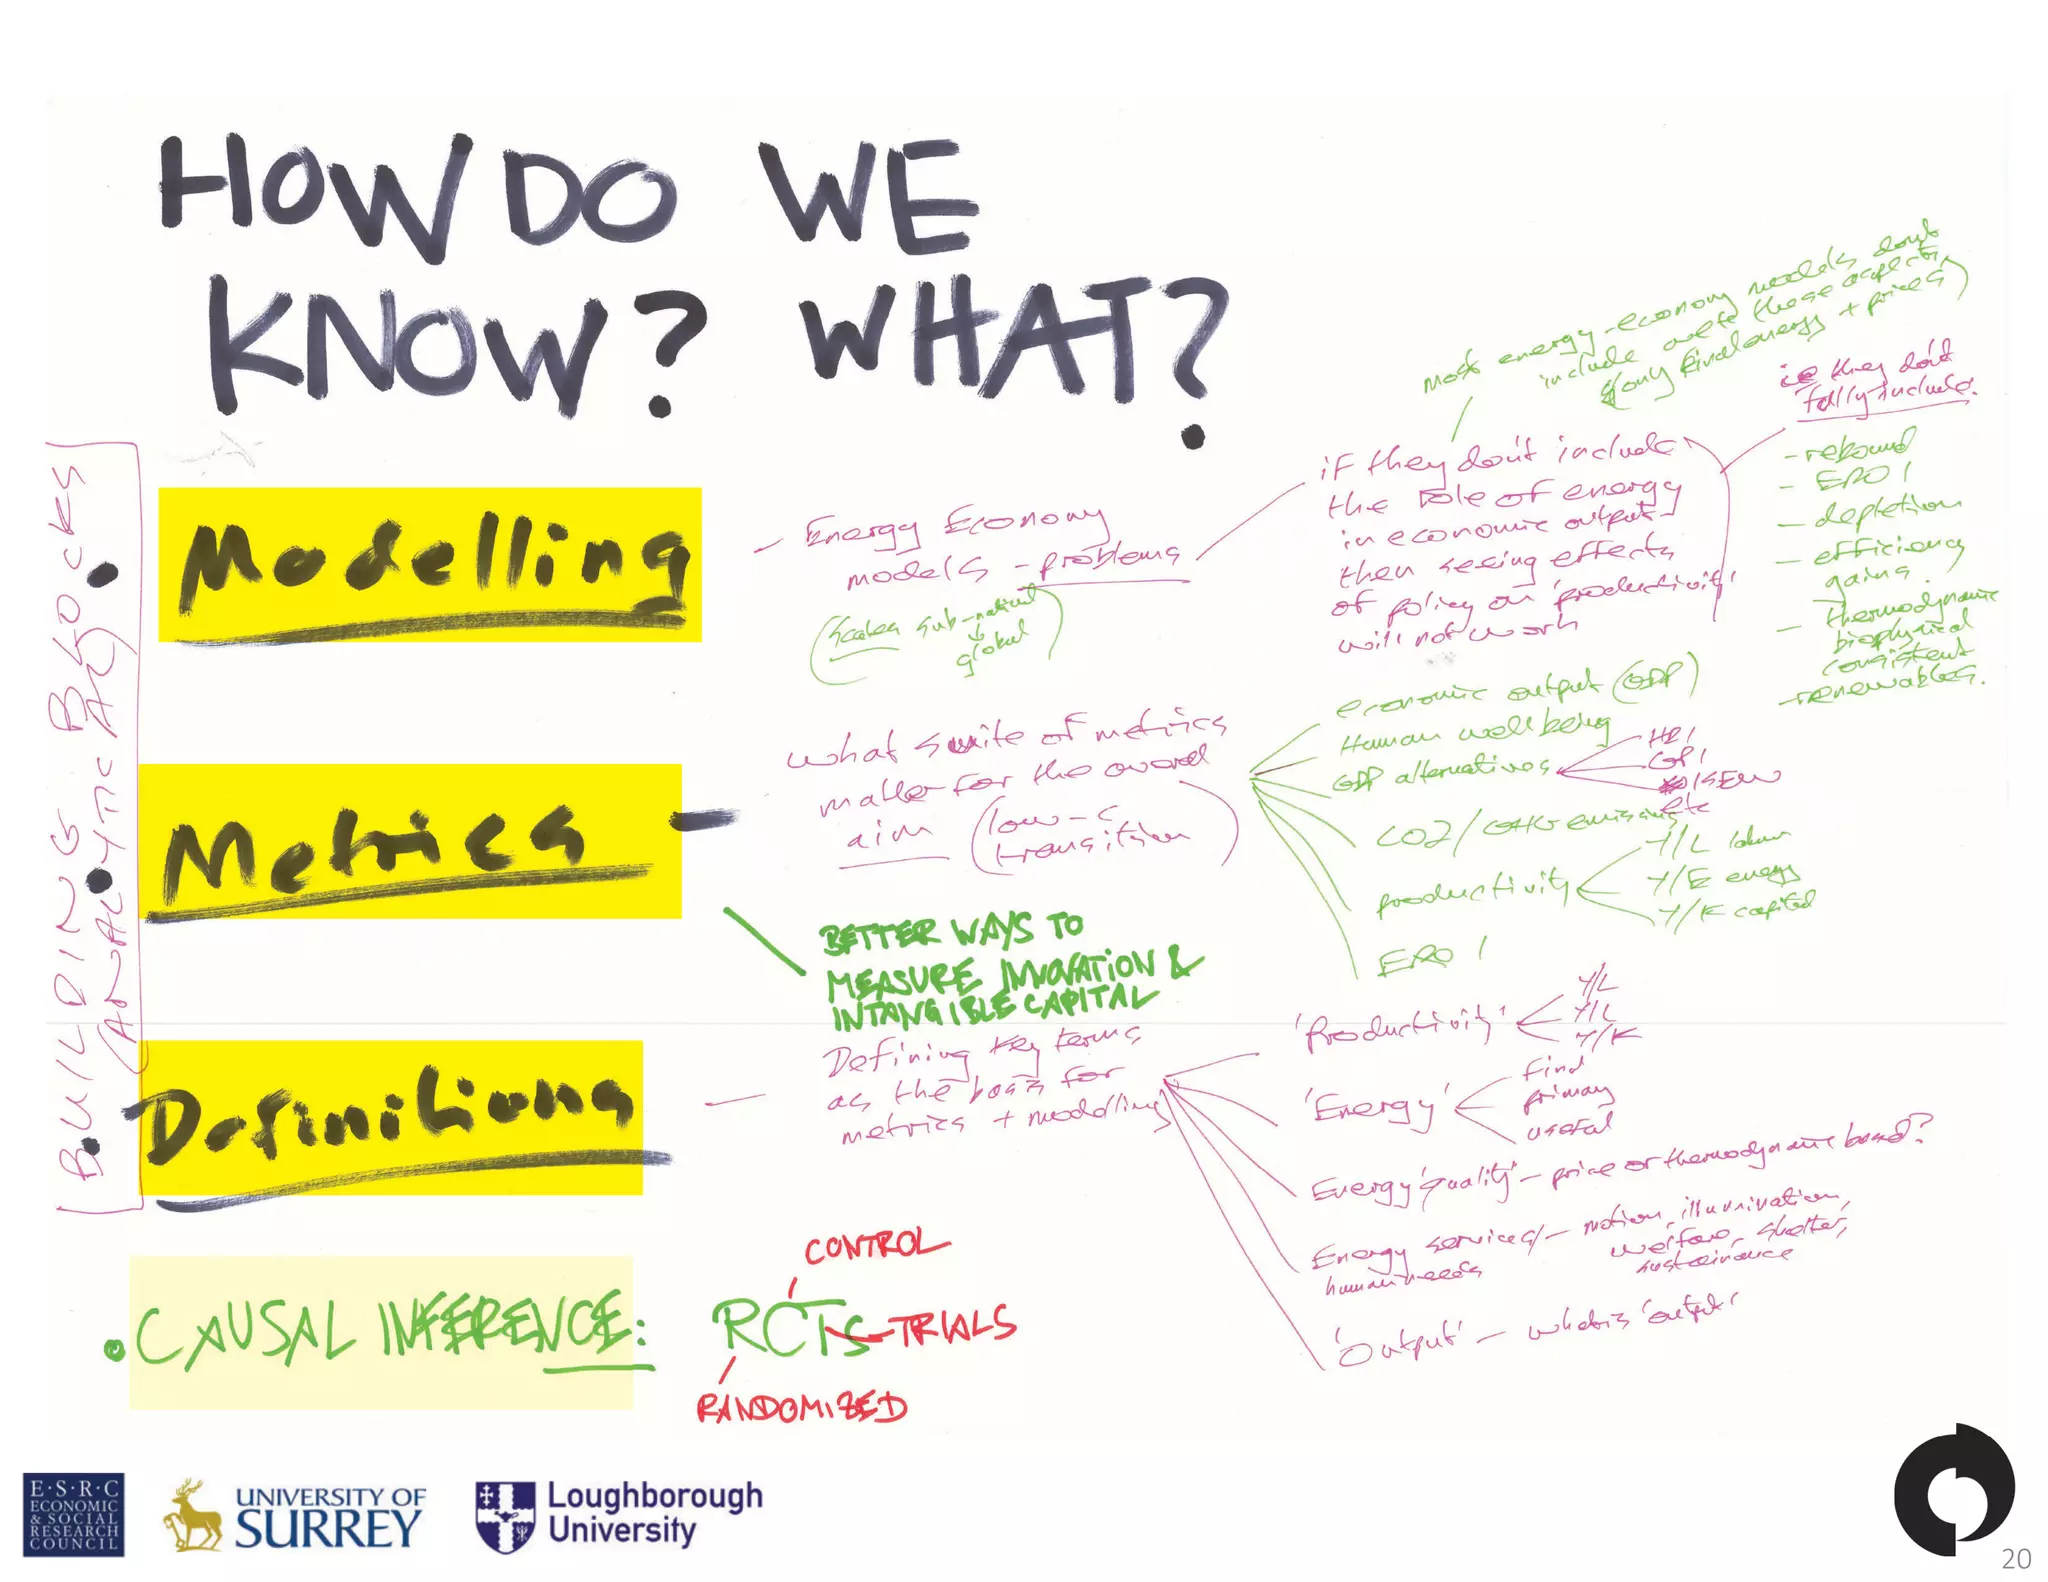 HOW DO WE
KNOW? WHAT?
BUILDING BLOCKS
(ANALYTIC AL)
Modelling
- Energy Economy
models - problems
(scales sub-national
↓
global)
if they don't include
the role of energy
in economic output
then seeing effects
of policy on 'productivity'
will not work
most energy-economy models don't
include these aspects
(only final energy + prices)
ie they don't
fully include.
- rebound
- EROI
- depletion
- efficiency
gains.
- thermodynamic
biophysical
consistent
- renewables.
Metrics
- what suite of metrics
matter for the overall
aim (low-c
transition)
economic output (GDP)
Human wellbeing
GDP alternatives
HPI
GPI
ISEW
etc
CO2/GHG emissions
productivity
Y/L labour
Y/E energy
Y/K capital
EROI
BETTER WAYS TO
MEASURE INNOVATION &
INTANGIBLE CAPITAL
Definitions
- Defining key terms
as the basis for
metrics + modelling
'Productivity'
Y/L
Y/L
Y/K
'Energy'
final
primary
useful
Energy 'quality' - price or thermodynamic based?
Energy services/ - motion, illumination,
human needs
welfare, shelter,
sustainance
'Output' - what is 'output'
• CAUSAL INFERENCE:
RCTs
CONTROL
TRIALS
RANDOMIZED
E·S·R·C
ECONOMIC
& SOCIAL
RESEARCH
COUNCIL
UNIVERSITY OF
SURREY
Loughborough
University
20